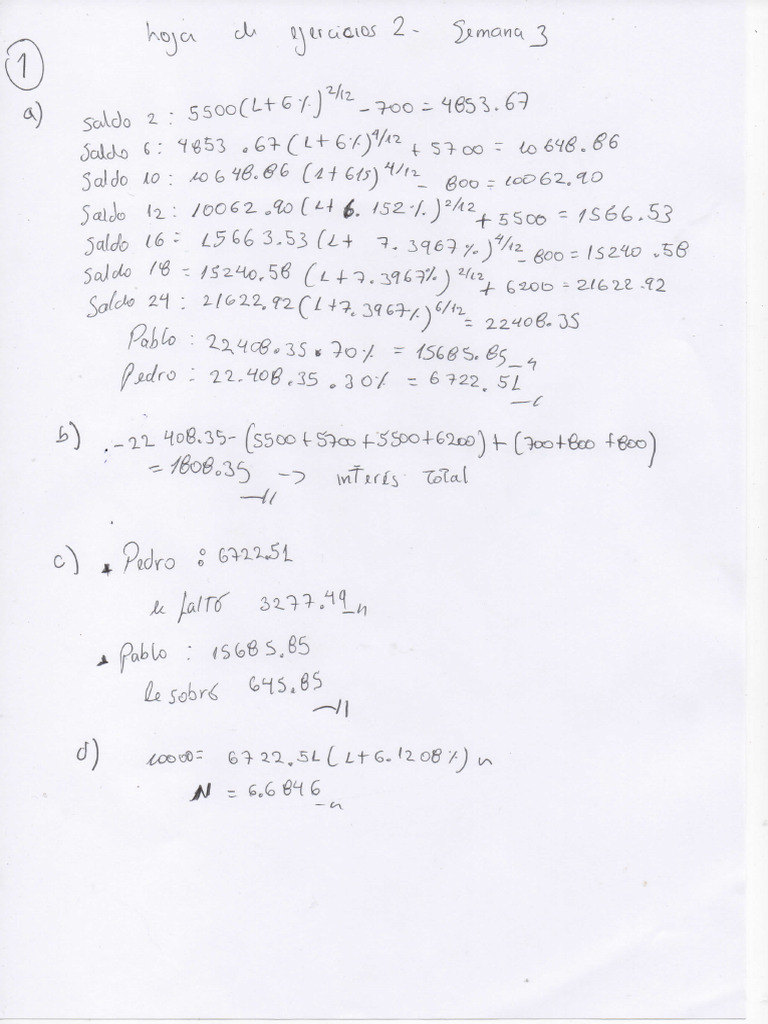 hoja de ejercicios 2 - Semana 3
1
a) Saldo 2 : 5500(1+6%)^2/12 - 700 = 4853.67
Saldo 6 : 4853.67(1+6%)^4/12 + 5700 = 10648.86
Saldo 10 : 10648.86 (1+615)^4/12 - 800 = 10062.90
Saldo 12 : 10062.90(1+6.152%)^2/12 + 5500 = 1566.53
Saldo 16 = 15663.53(1+ 7.3967%)^4/12 - 800 = 15240.58
Saldo 18 = 15240.58 (1+7.3967%)^2/12 + 6200 = 21622.92
Saldo 24 : 21622.92(1+7.3967%)^6/12 = 22408.35
Pablo : 22408.35 . 70% = 15685.85
Pedro : 22.408.35 . 30% = 6722.51
b) -22 408.35 - (5500+5700+5500+6200) + (700+800+800)
= 1808.35 → interés total
c) Pedro : 6722.51
le faltó 3277.49
Pablo : 15685.85
le sobró 645.85
d) 10000 = 6722.51(1+6.1208%) n
N = 6.6846